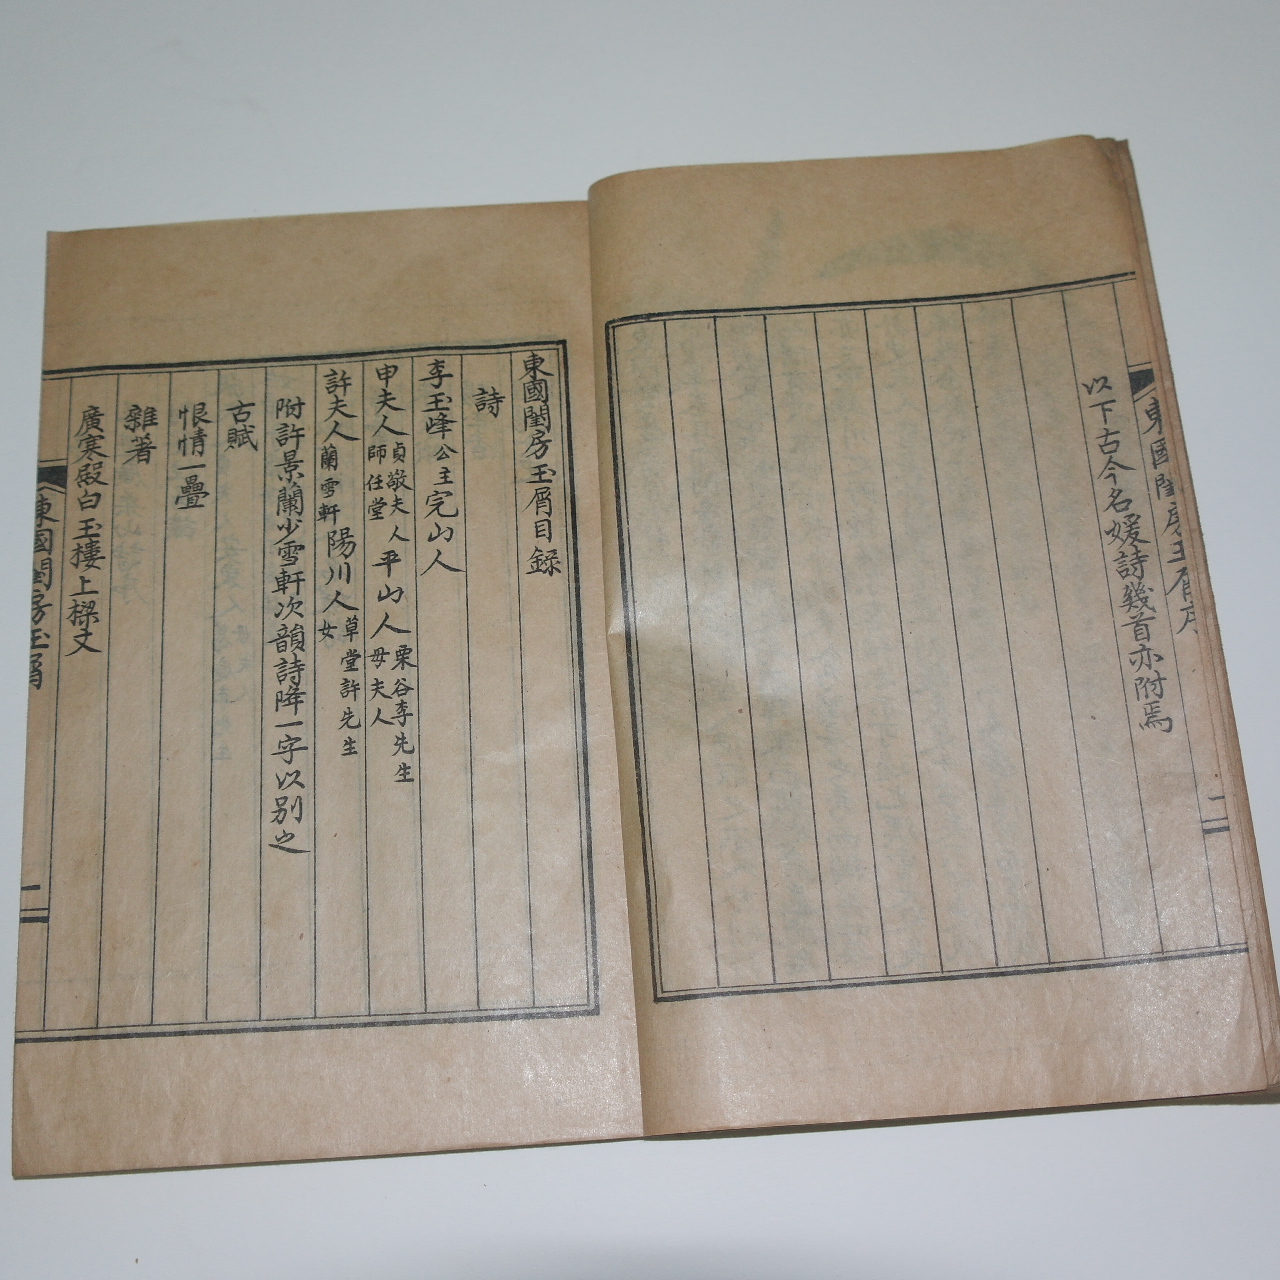 東國閨房玉屑序
二
以下古今名媛詩幾首亦附焉
東國閨房玉屑目錄
詩
李玉峰公主完山人
申夫人貞敬夫人師任堂平山人栗谷李先生母夫人
許夫人蘭雪軒陽川人草堂許先生女
附許景蘭少雪軒次韻詩降一字以別之
古賦
恨情一疊
雜著
廣寒殿白玉樓上樑文
東國閨房玉屑
二